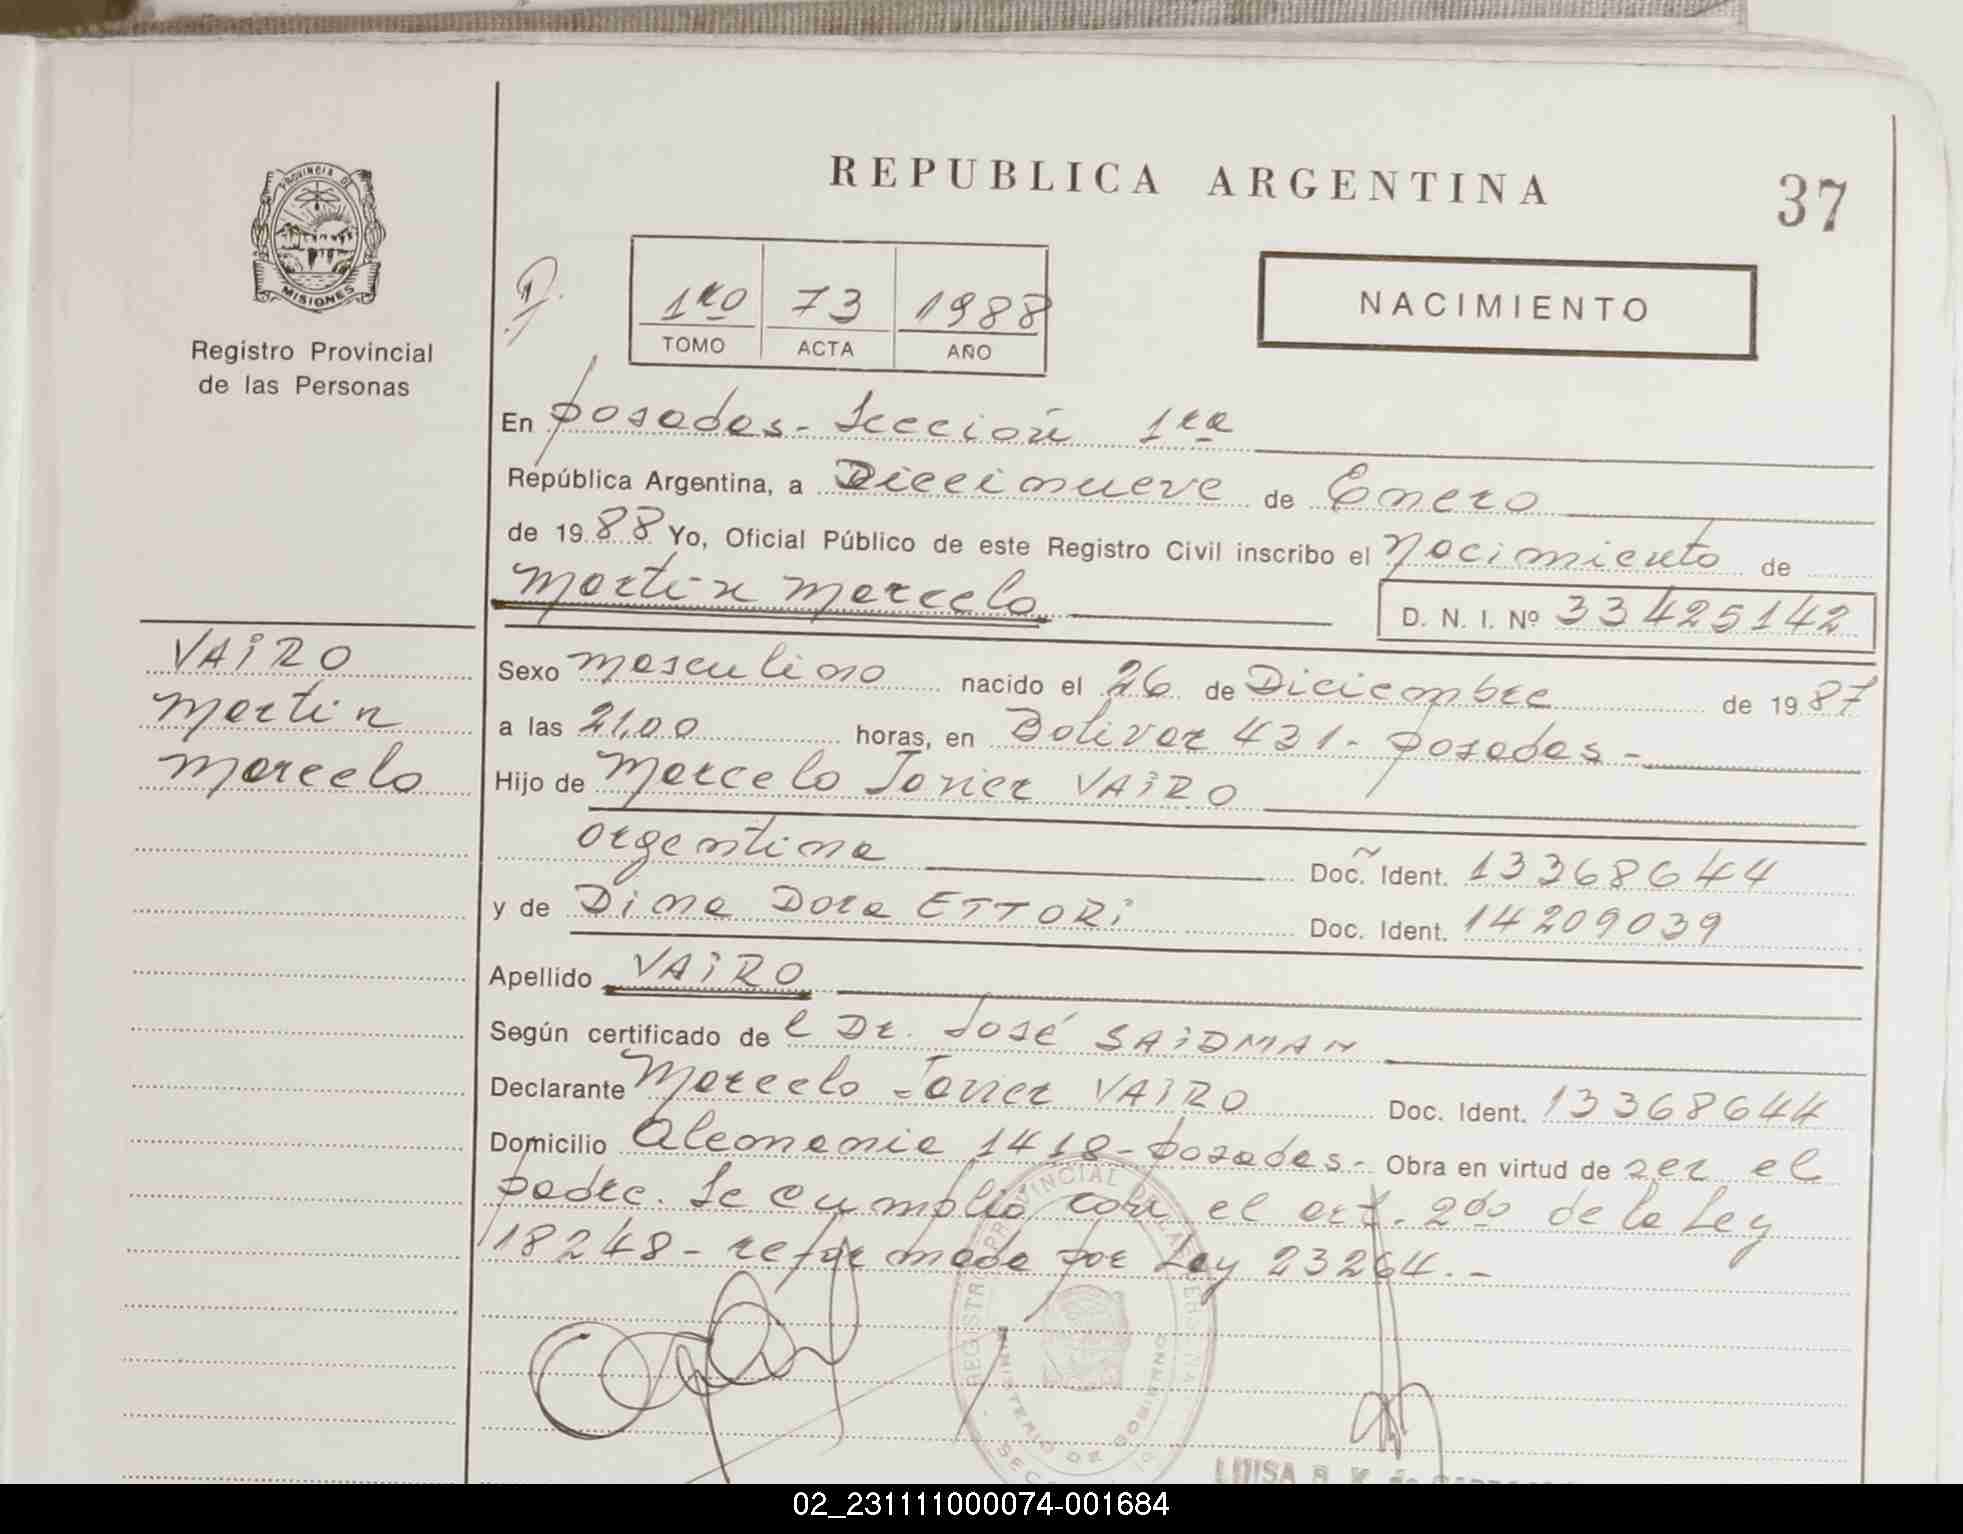 REPUBLICA ARGENTINA
37
PROVINCIA DE
MISIONES
Registro Provincial
de las Personas
1ro 73 1988
TOMO ACTA AÑO
NACIMIENTO
En Posadas - Sección 1ra
República Argentina, a Diecinueve de Enero
de 1988 Yo, Oficial Público de este Registro Civil inscribo el Nacimiento de
Martin Marcelo
D. N. I. Nº 33425142
VAiRO
Martin
Marcelo
Sexo masculino nacido el 26 de Diciembre de 1987
a las 21,00 horas, en Bolivar 431 - Posadas -
Hijo de Marcelo Javier VAiRO
argentina Doc. Ident. 13368644
y de Dina Dora ETTORi Doc. Ident. 14209039
Apellido VAiRO
Según certificado de l Dr. José SAiDMAN
Declarante Marcelo Javier VAiRO Doc. Ident. 13368644
Domicilio Alemania 1418 - Posadas - Obra en virtud de ser el
padre. Se cumplió con el art. 2do de la Ley
18248 - reformada por Ley 23264. -
MINISTERIO DE GOBIERNO
LUISA
02_231111000074-001684